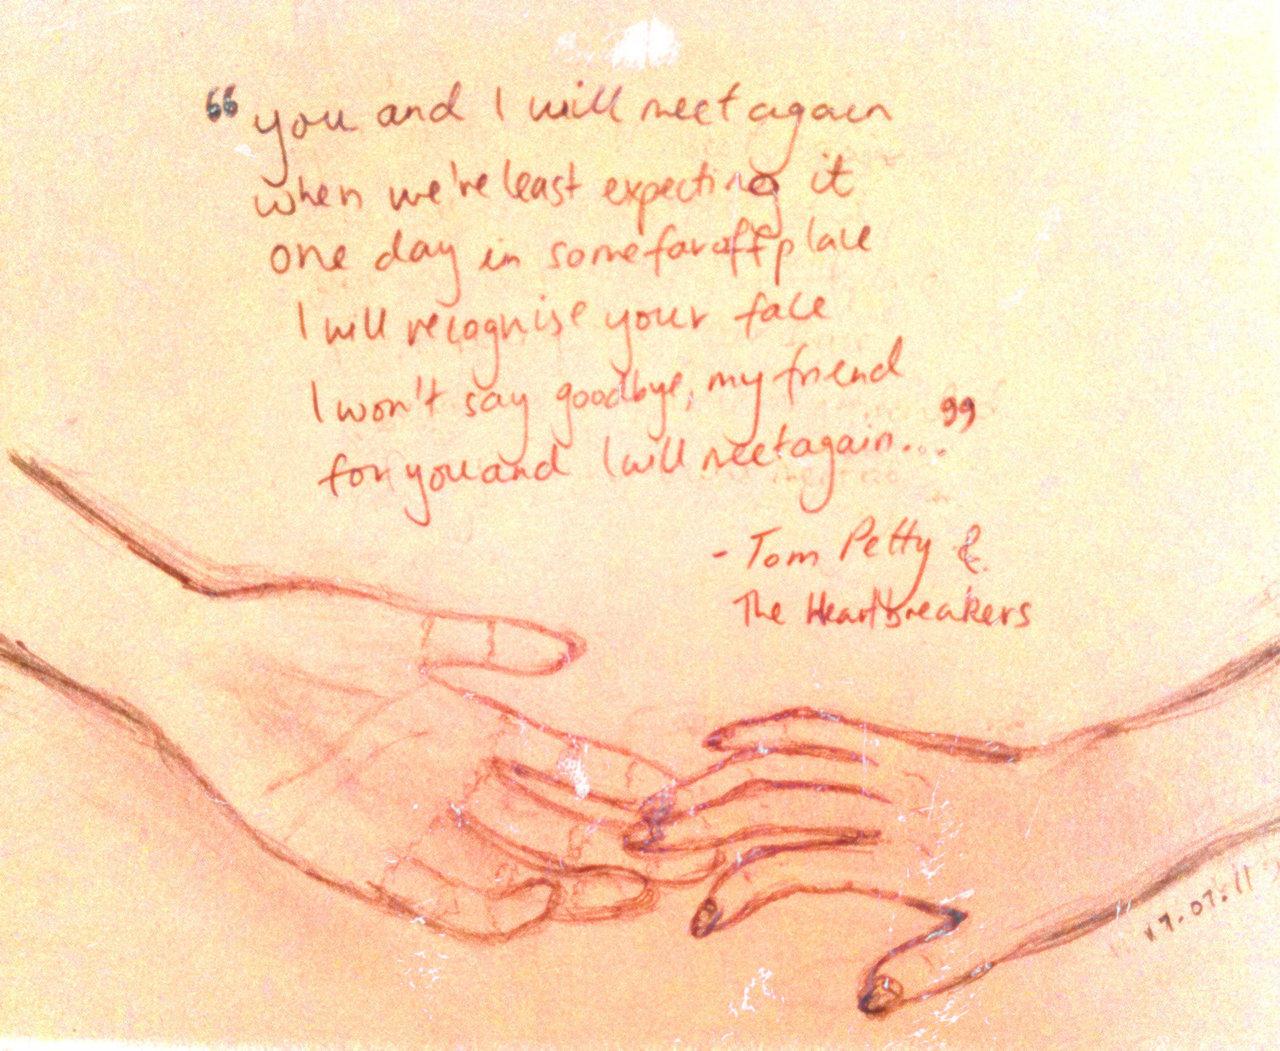 “you and I will meet again
when we're least expecting it
one day in some far off place
I will recognise your face
I won't say goodbye, my friend
for you and I will meet again...”
- Tom Petty &
The Heartbreakers
17.07.11